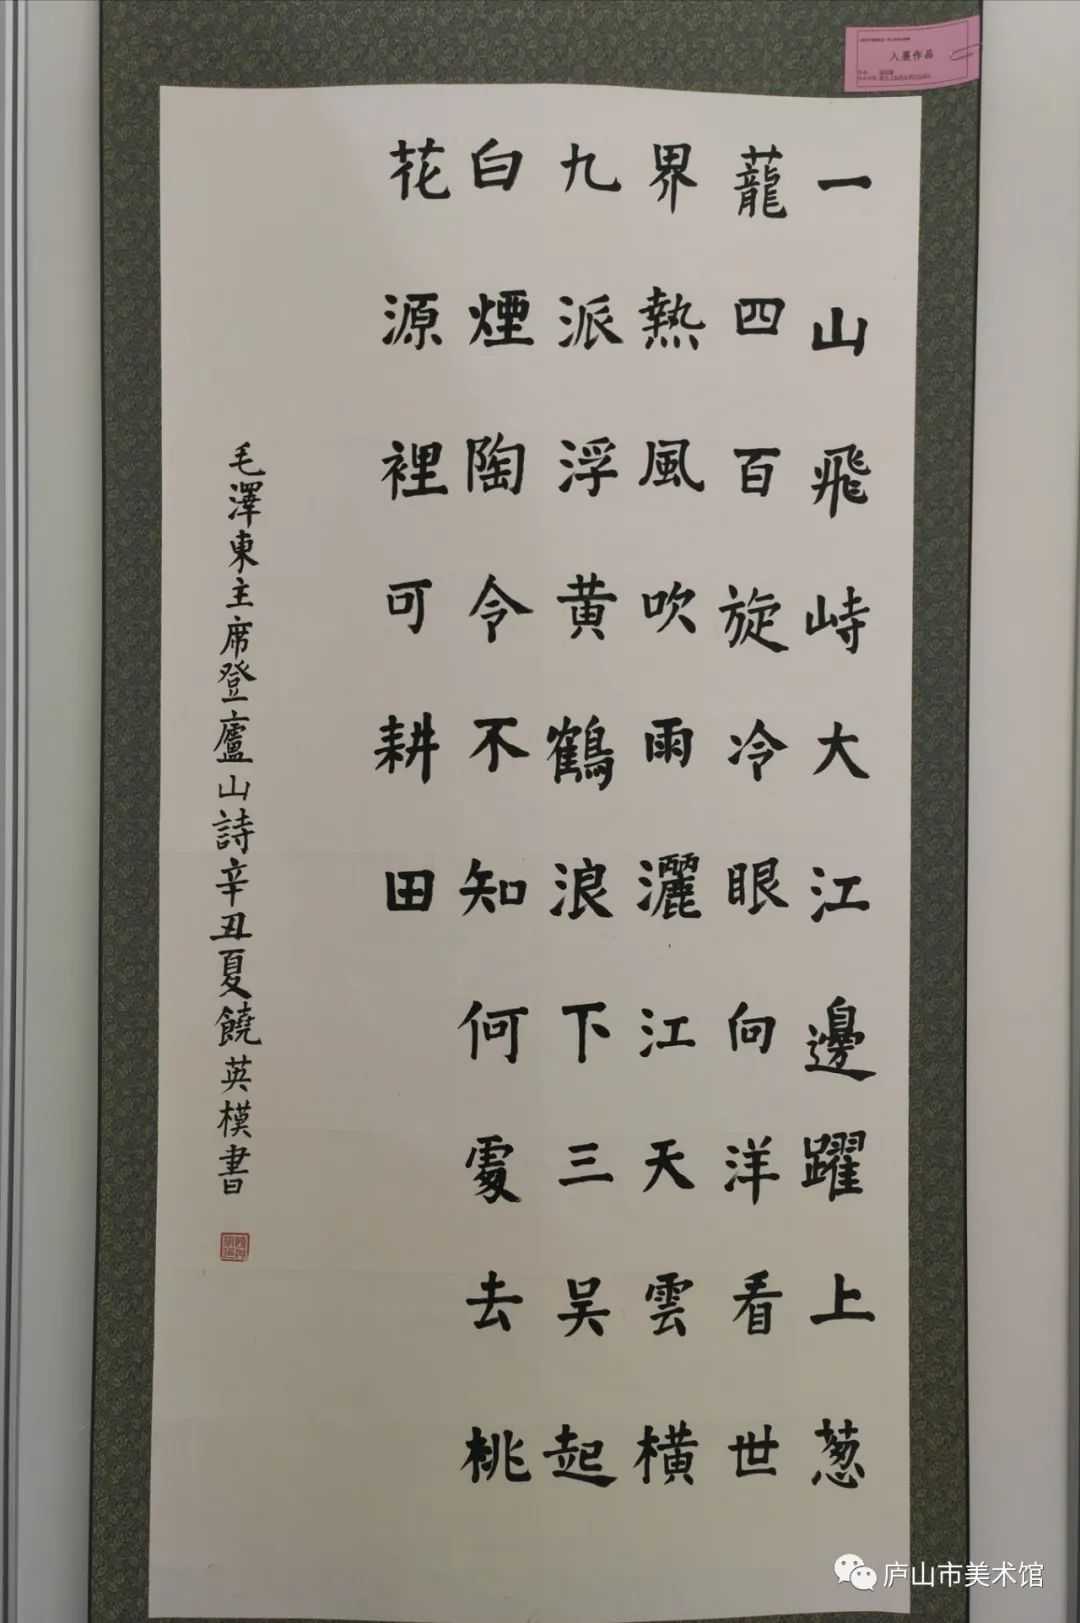 一山飛峙大江邊躍上葱
蘢四百旋冷眼向洋看世
界熱風吹雨灑江天雲横
九派浮黄鶴浪下三吴起
白煙陶令不知何處去桃
花源裡可耕田
毛澤東主席登廬山詩辛丑夏饒英模書
入展作品
庐山市美术馆